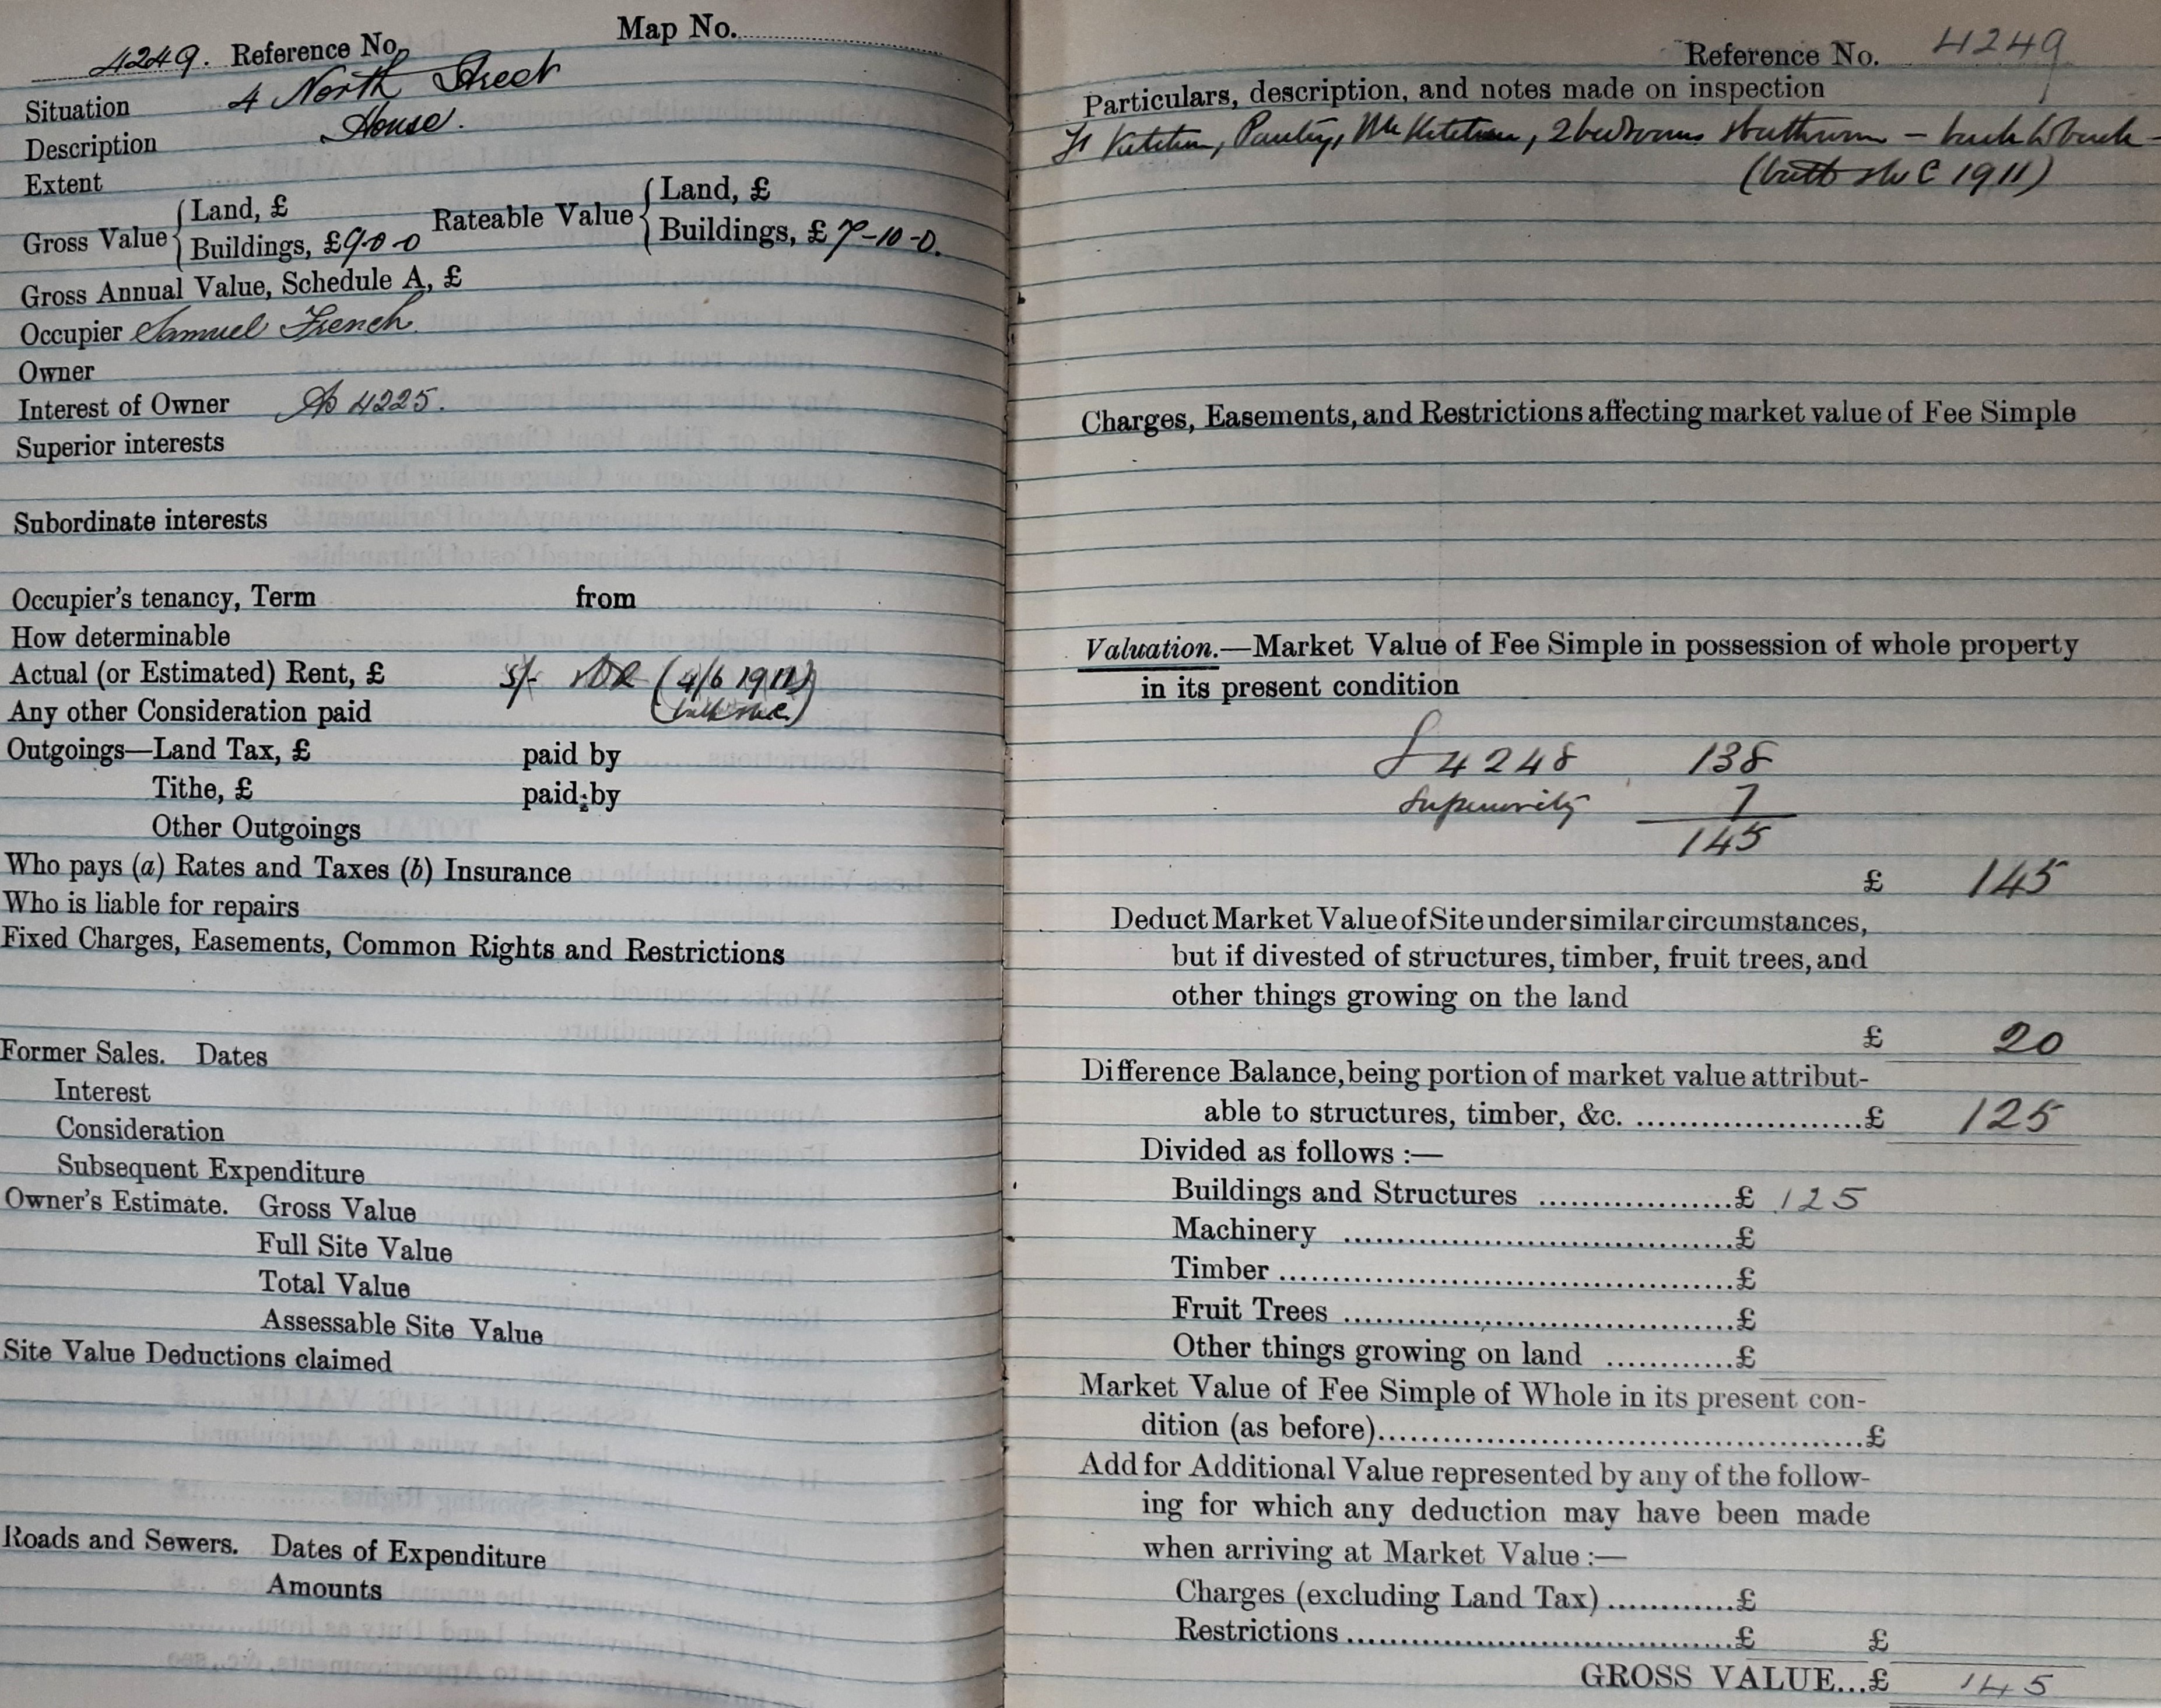 Map No.
4249. Reference No.
Situation 4 North Street
Description House.
Extent
Gross Value { Land, £
Buildings, £9-0-0
Rateable Value { Land, £
Buildings, £7-10-0.
Gross Annual Value, Schedule A, £
Occupier Samuel French
Owner
Interest of Owner As 4225.
Superior interests
Subordinate interests
Occupier's tenancy, Term from
How determinable
Actual (or Estimated) Rent, £ 5/- (4/6 1911)
Any other Consideration paid
Outgoings—Land Tax, £ paid by
Tithe, £ paid by
Other Outgoings
Who pays (a) Rates and Taxes (b) Insurance
Who is liable for repairs
Fixed Charges, Easements, Common Rights and Restrictions
Former Sales. Dates
Interest
Consideration
Subsequent Expenditure
Owner's Estimate. Gross Value
Full Site Value
Total Value
Assessable Site Value
Site Value Deductions claimed
Roads and Sewers. Dates of Expenditure
Amounts
Reference No. 4249
Particulars, description, and notes made on inspection
Kitchen, Pantry, Kitchen, 2 bedrooms bathroom — back to back —
1911)
Charges, Easements, and Restrictions affecting market value of Fee Simple
Valuation.—Market Value of Fee Simple in possession of whole property
in its present condition
4248 138
Superiority 7
145
£ 145
Deduct Market Value of Site under similar circumstances,
but if divested of structures, timber, fruit trees, and
other things growing on the land
£ 20
Difference Balance, being portion of market value attribut-
able to structures, timber, &c. ......................£ 125
Divided as follows :—
Buildings and Structures ..................£ 125
Machinery ....................................£
Timber ..........................................£
Fruit Trees ....................................£
Other things growing on land ............£
Market Value of Fee Simple of Whole in its present con-
dition (as before)............................................£
Add for Additional Value represented by any of the follow-
ing for which any deduction may have been made
when arriving at Market Value :—
Charges (excluding Land Tax) ............£
Restrictions ....................................£ £
GROSS VALUE...£ 145